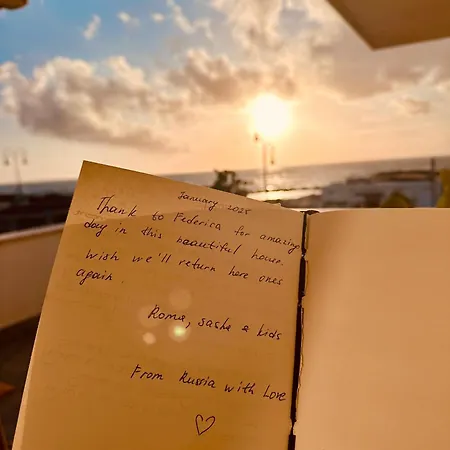 January 2025
Thank to Federica for amazing
day in this beautiful house.
wish we'll return here ones
again.
Roma, Sasha & kids
From Russia with Love
♡